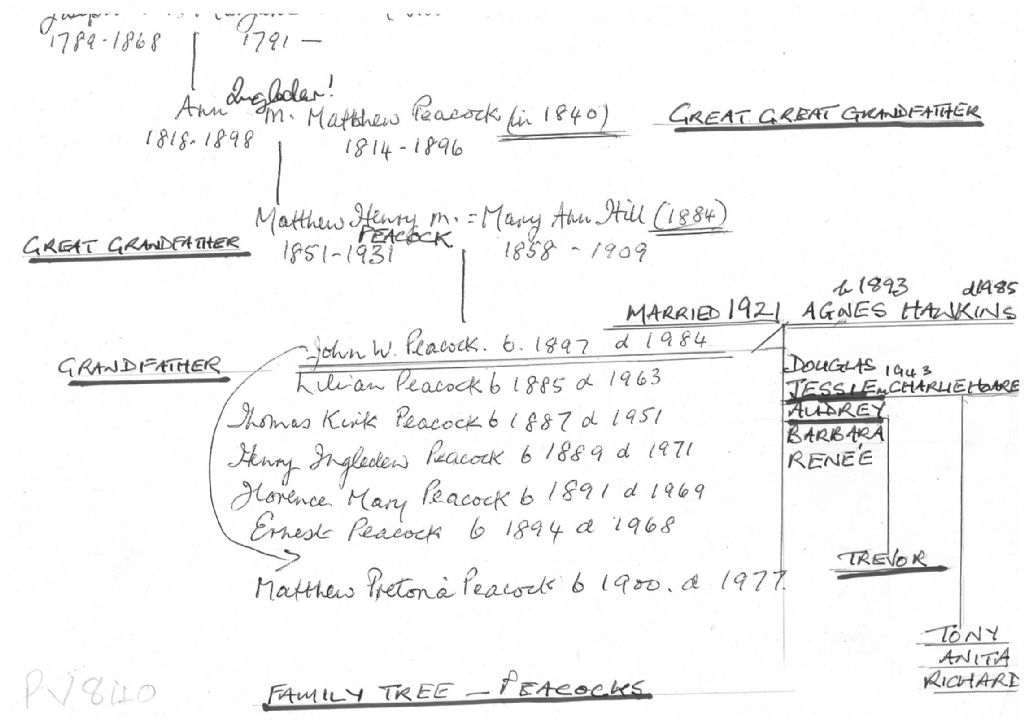 1789-1868 1791 —
Ingledew!
Ann m. Matthew Peacock (in 1840) GREAT GREAT GRANDFATHER
1818-1898 1814-1896
Matthew Henry m. = Mary Ann Hill (1884)
GREAT GRANDFATHER PEACOCK
1851-1931 1858 - 1909
b 1893 d1985
MARRIED 1921 AGNES HAWKINS
John W. Peacock. b. 1897 d 1984
GRANDFATHER
DOUGLAS 1943
Lilian Peacock b 1885 d 1963 JESSIE m CHARLIE HOARE
Thomas Kirk Peacock b 1887 d 1951 AUDREY
BARBARA
Henry Ingledew Peacock b 1889 d 1971 RENÉE
Florence Mary Peacock b 1891 d 1969
Ernest Peacock b 1894 d 1968
TREVOR
Matthew Pretoria Peacock b 1900. d 1977.
TONY
ANITA
RICHARD
PV840
FAMILY TREE – PEACOCKS